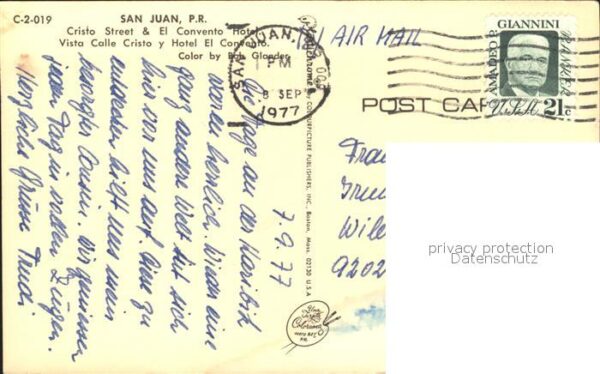 C-2-019
SAN JUAN, P.R.
Cristo Street & El Convento Hotel
Vista Calle Cristo y Hotel El Convento.
Color by Bob Glander
AIR MAIL
SAN JUAN, P.R.
PM
8 SEP
1977
AMADEO P. GIANNINI
BANKER
21c
POST CAR
COLOURPICTURE PUBLISHERS, INC., Boston, Mass. 02130 U.S.A.
7.9.77
Tage an der Karibik
waren herrlich. Wieder eine
ganz andere Welt tut sich
hier vor uns auf. Diese zu
entdecken hilft uns mein
Cousin. Wir geniessen
jeden Tag in vollen Zügen.
Herzliche Grüsse Trudi
Frau
Wile
9202
privacy protection
Datenschutz